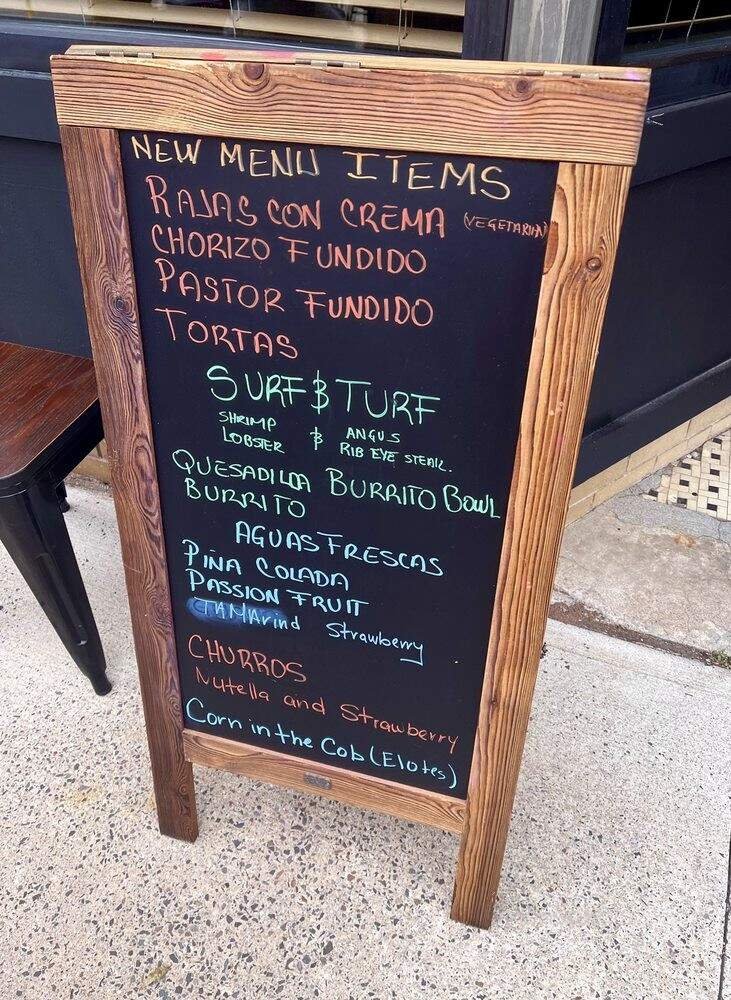 NEW MENU ITEMS
RAJAS CON CREMA (VEGETARIAN)
CHORIZO FUNDIDO
PASTOR FUNDIDO
TORTAS
SURF & TURF
SHRIMP LOBSTER & ANGUS RIB EYE STEAK.
QUESADILLA BURRITO BOWL
BURRITO
AGUAS FRESCAS
PIÑA COLADA
PASSION FRUIT
TAMArind Strawberry
CHURROS
Nutella and Strawberry
Corn in the Cob (Elotes)